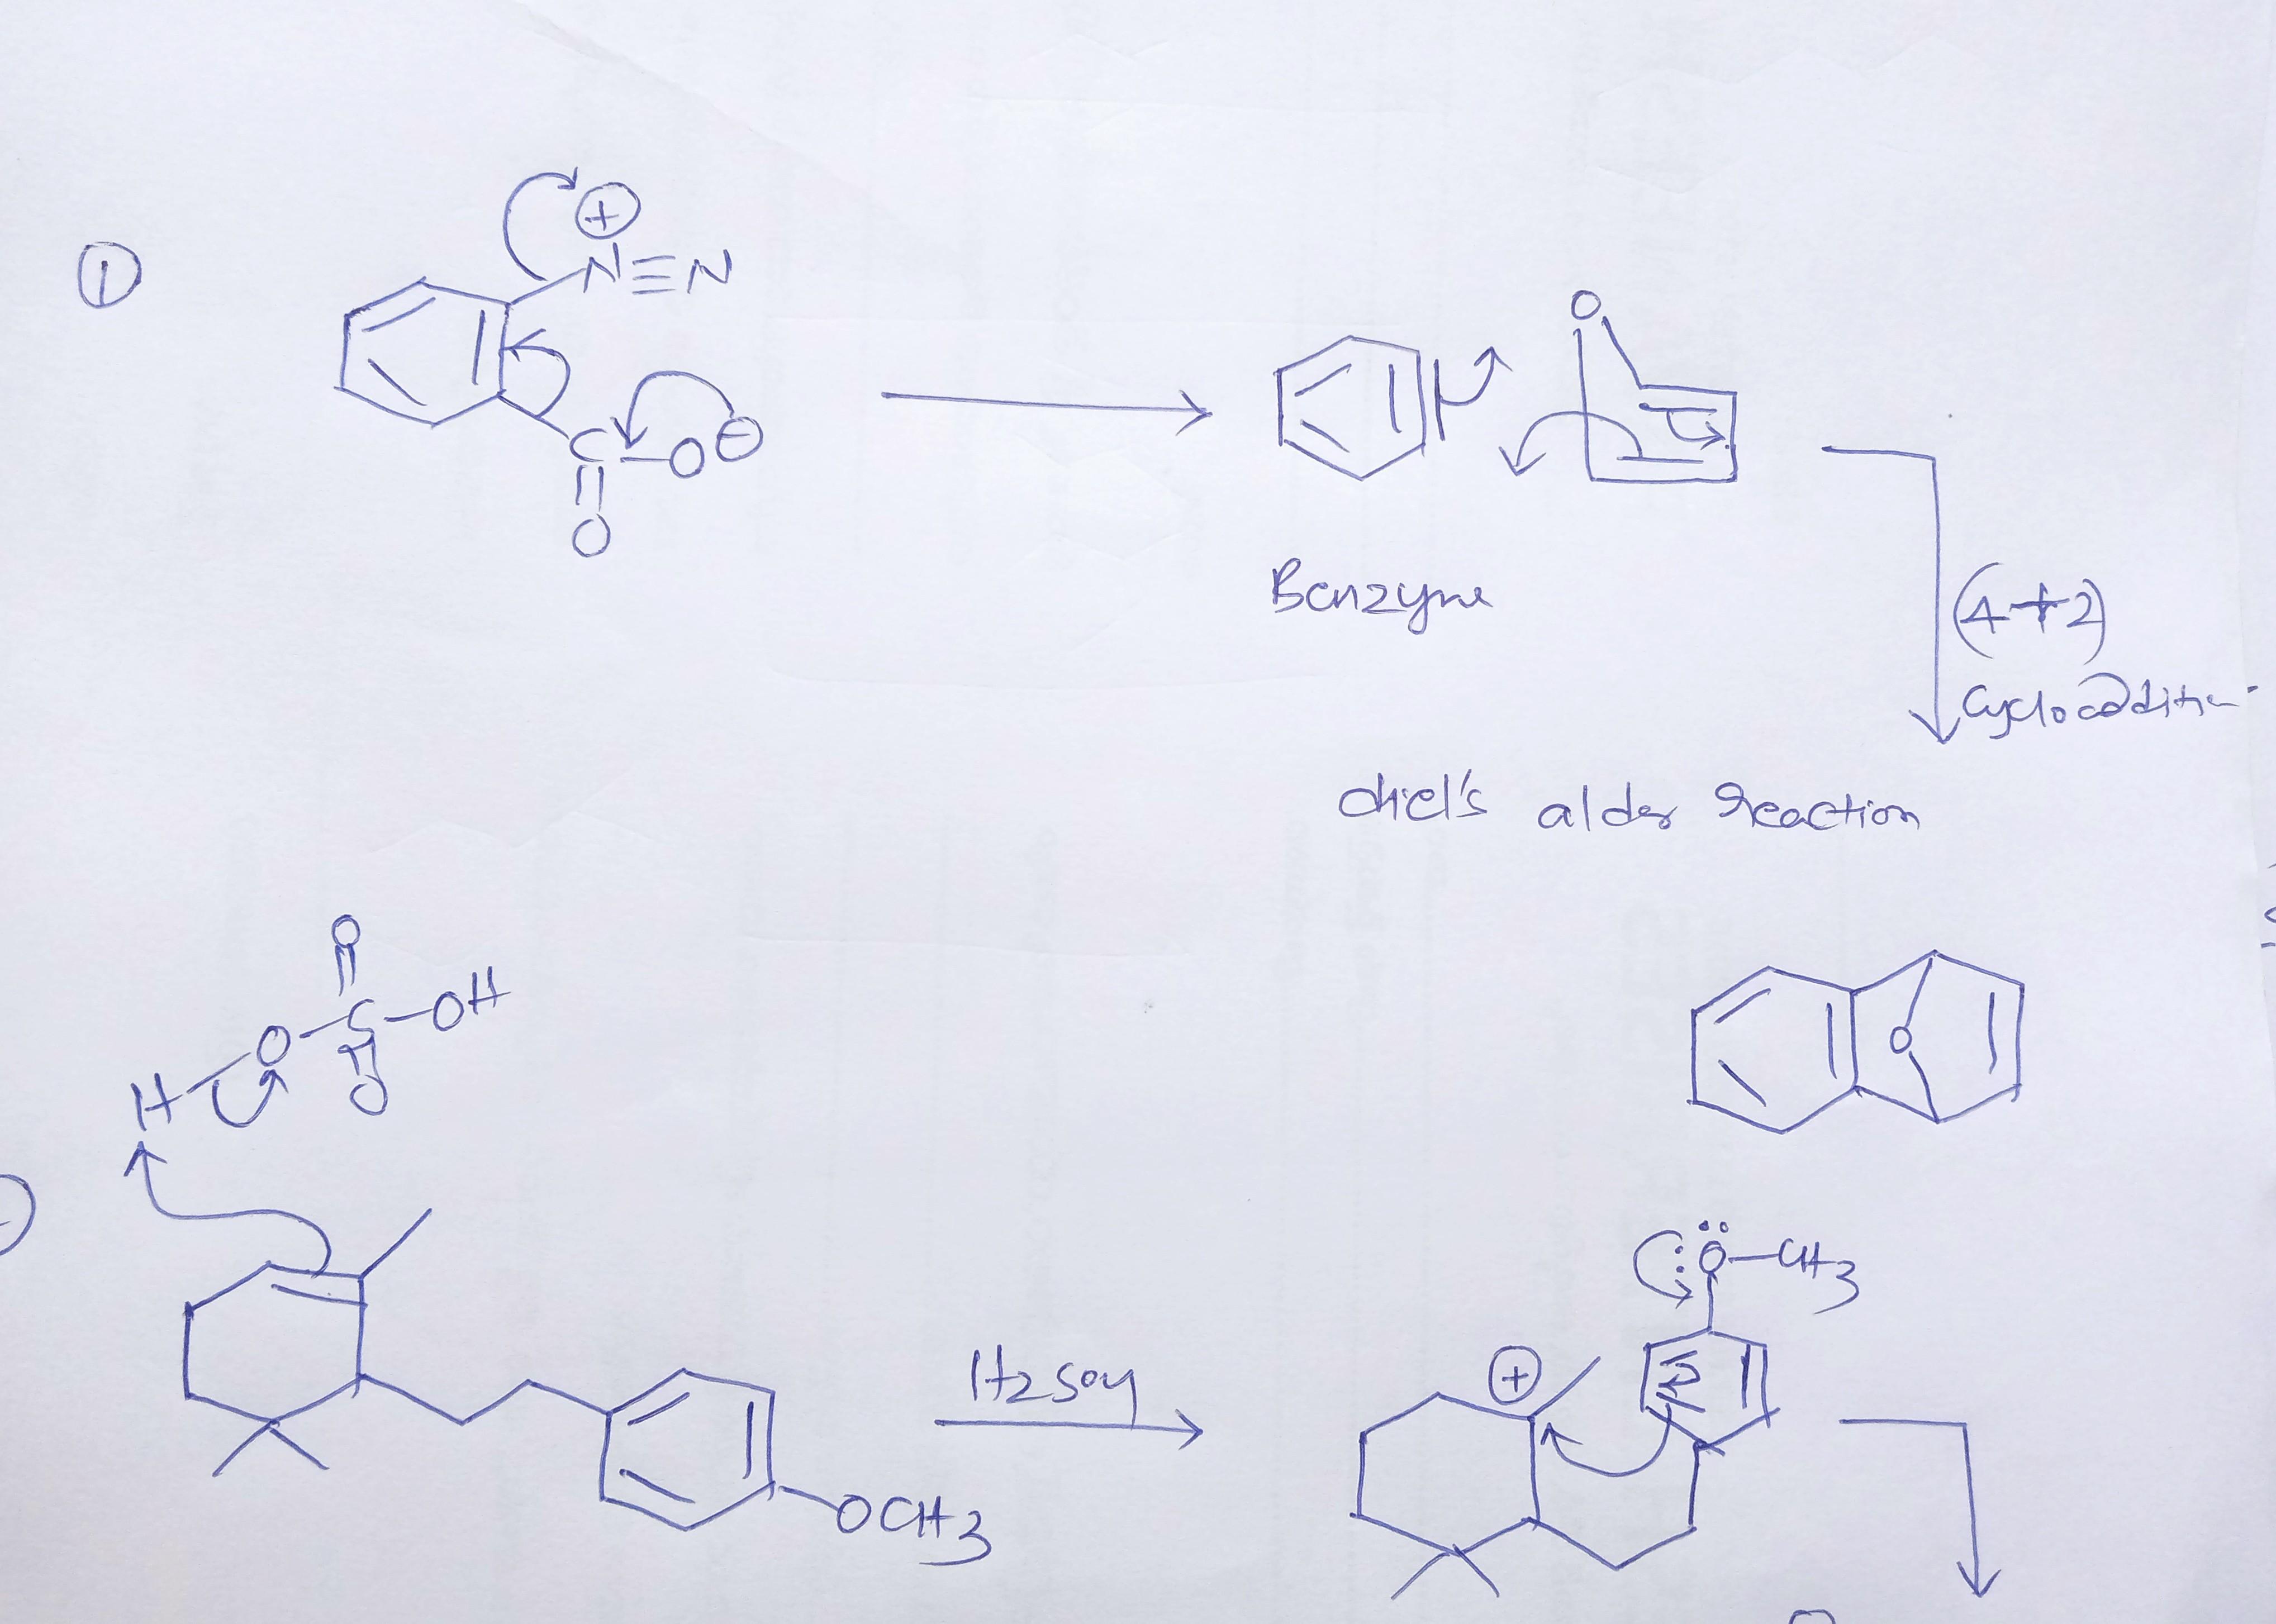 ①
⊕
N≡N
C-O⊖
O
O
Benzyne
(4+2)
Cycloaddition
diel's alder reaction
O
O
H-O-S-OH
O
:Ö-CH3
H2SO4
⊕
OCH3